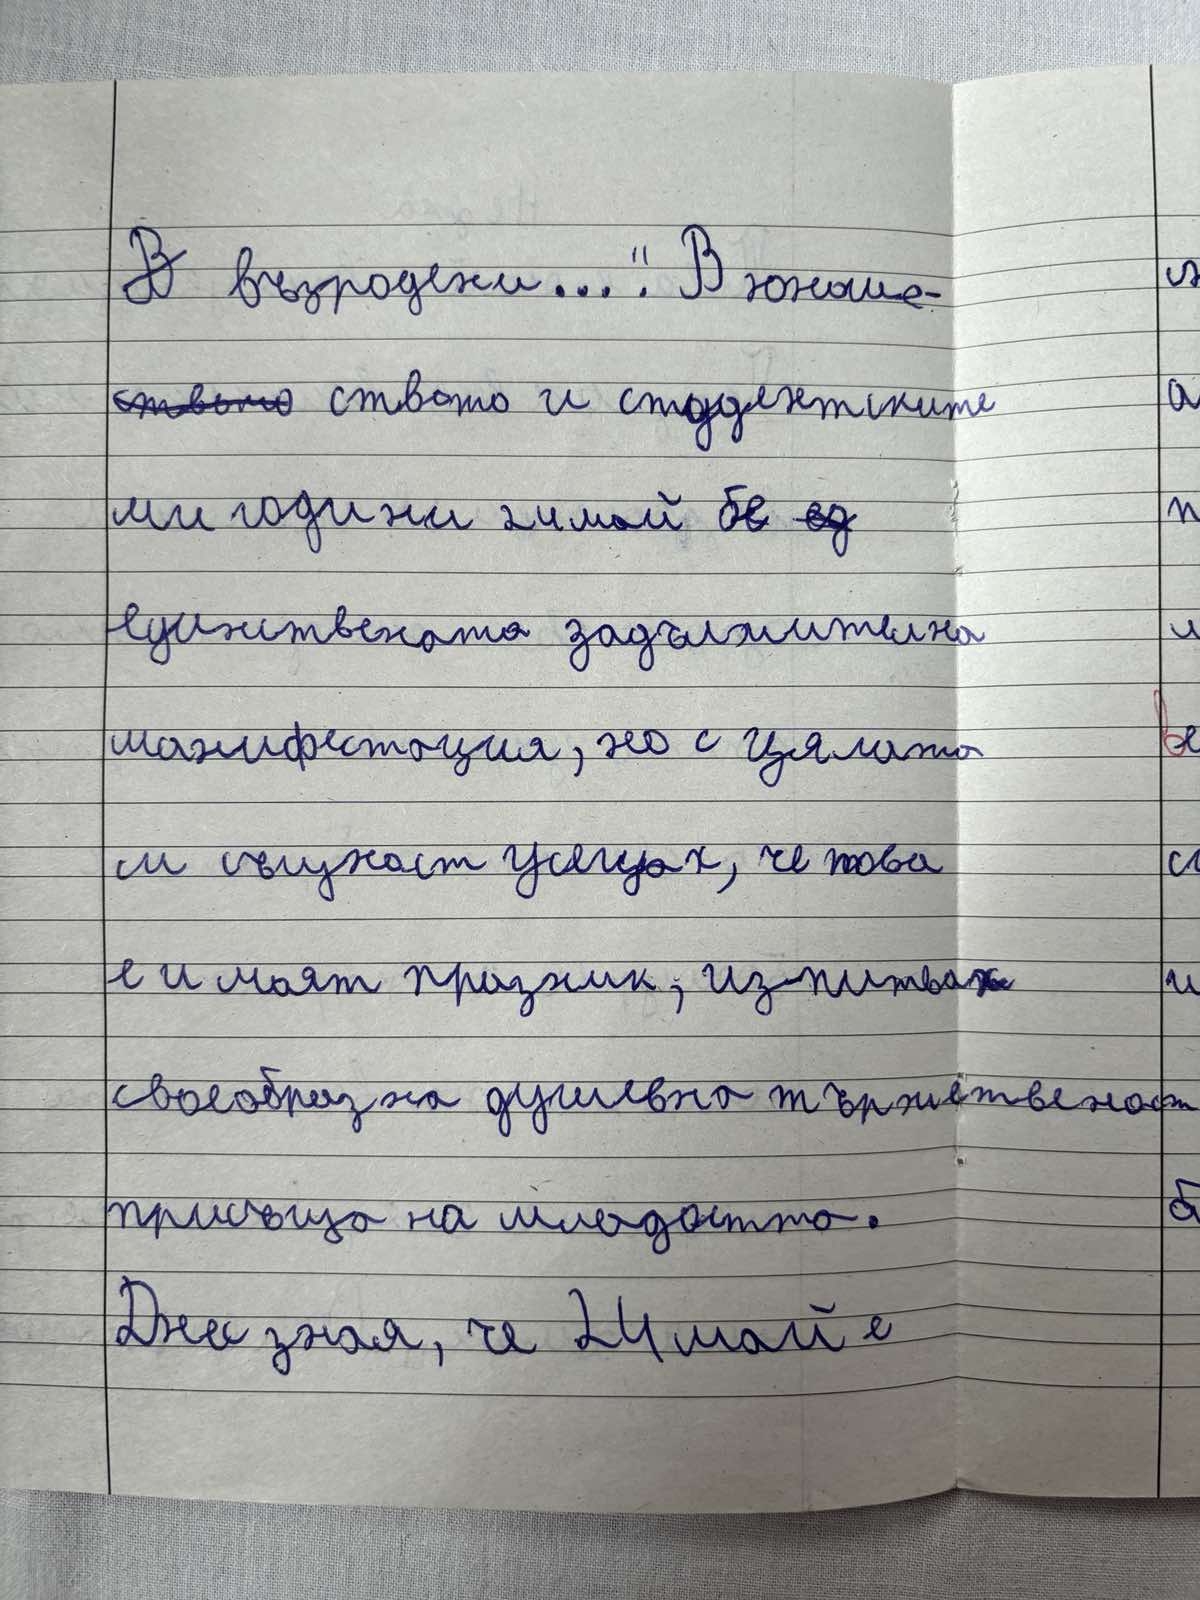 В възродени...". В юноше-
ството и студентските
ми години 24 май бе
единствената задължителна
манифестация, но с цялата
си същност усещах, че това
е и моят празник, изпитвах
своеобразна душевна тържественост
присъща на младостта.
Днес зная, че 24 май е